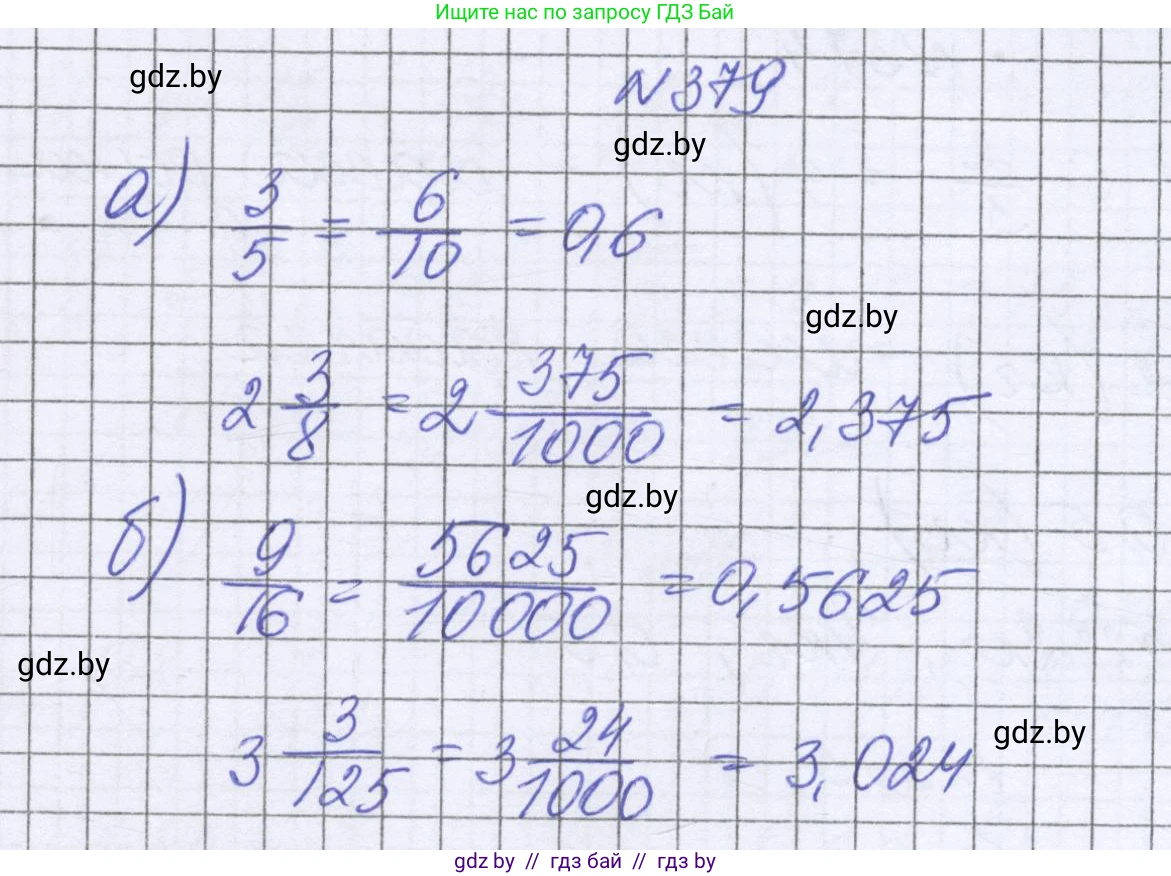 Ищите нас по запросу ГДЗ Бай
gdz.by
N379
gdz.by
а) 3/5 = 6/10 = 0,6
gdz.by
2 3/8 = 2 375/1000 = 2,375
gdz.by
б) 9/16 = 5625/10000 = 0,5625
gdz.by
gdz.by
3 3/125 = 3 24/1000 = 3,024
gdz.by // гдз бай // гдз by